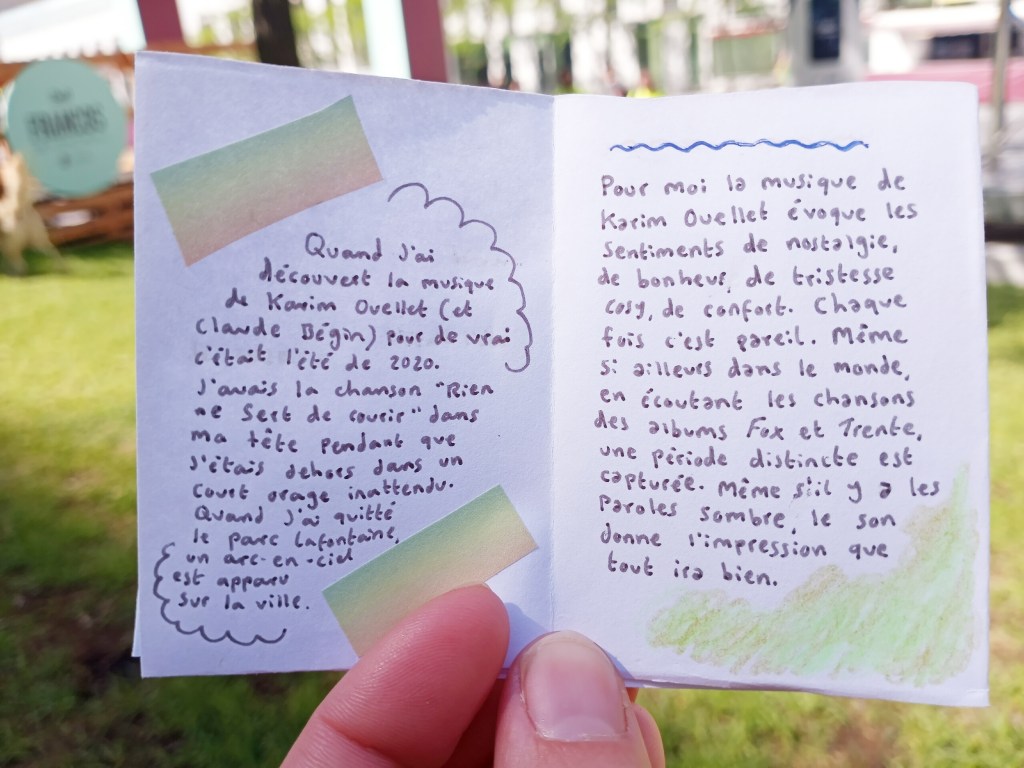 FRANCIS
Quand J'ai
découvert la musique
de Karim Ouellet (et
Claude Bégin) pour de vrai
c'était l'été de 2020.
J'avais la chanson "Rien
ne Sert de courir" dans
ma tête pendant que
J'étais dehors dans un
court orage inattendu.
Quand J'ai quitté
le parc Lafontaine,
un arc-en-ciel
est apparu
sur la ville.
Pour moi la musique de
Karim Ouellet évoque les
sentiments de nostalgie,
de bonheur, de tristesse
cosy, de confort. Chaque
fois c'est pareil. Même
si ailleurs dans le monde,
en écoutant les chansons
des albums Fox et Trente,
une période distincte est
capturée. Même s'il y a les
paroles sombre, le son
donne l'impression que
tout ira bien.